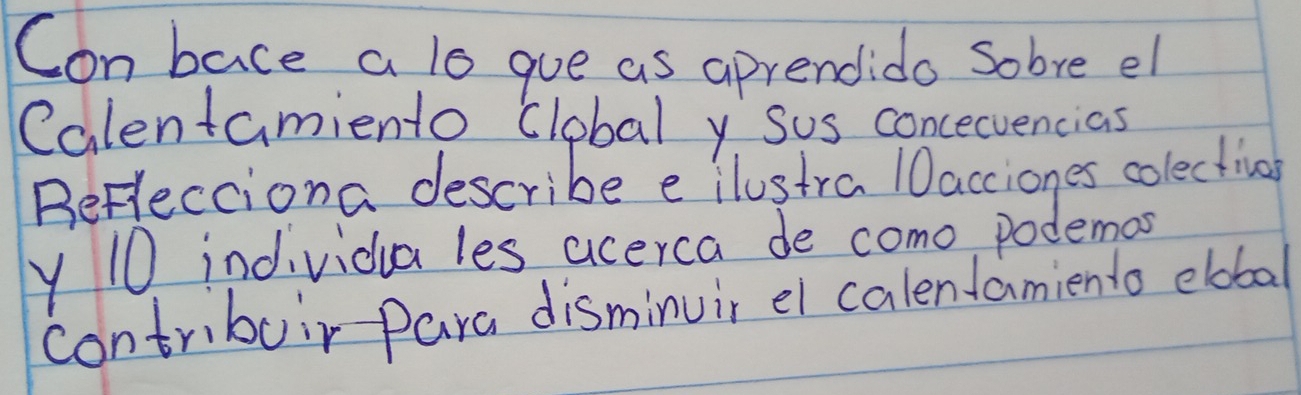 Con bace a lo que as aprendido Sobre el
Calentamiento Clobal y sus concecuencias
Reflecciona describe e ilustra 10 acciones colectivas
y 10 individua les acerca de como podemos
contribuir para disminuir el calentamiento elobal